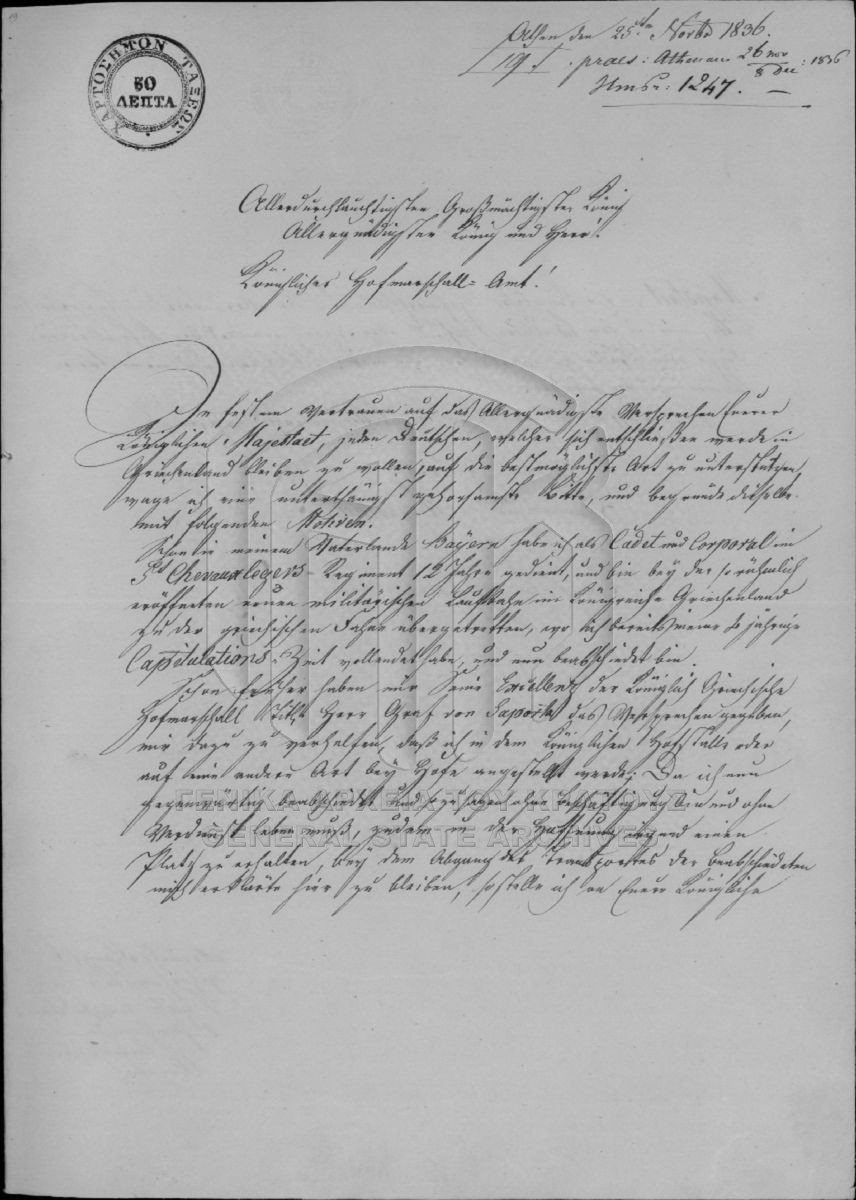 19
Athen den 25ten Novbr 1836.
praes: Athenam 26 nov / 8 Dec: 1836
Nms: 1247.
ΧΑΡΤΟΣΗΜΟΝ ΤΑΞΕΩΣ
50
ΛΕΠΤΑ
Allerdurchlauchtigster Großmächtigster König
Allergnädigster König und Herr!
Königliches Hofmarschall-Amt!
Im festem Vertrauen auf das Allergnädigste Versprechen Eurer
Königlichen Majestaet, jeden Deutschen, welcher sich entschließen werde in
Griechenland bleiben zu wollen, auf die bestmöglichste Art zu unterstützen,
wage ich eine unterthänigst gehorsamste Bitte, und begründe dieselbe
mit folgenden Motiven.
Schon in meinem Vaterlande Bayern habe ich als Cadet und Corporal im
Chevauxlegers-Regiment 12 Jahre gedient, und bin bey der so rühmlich
eröffneten neuen militärischen Laufbahn im Königreiche Griechenland
zu der griechischen Fahne übergetretten, wo ich bereits meine jährige
Capitulations-Zeit vollendet habe, und nun beabschiedet bin.
Schon früher haben mir Seine Excellenz der Königlich Griechische
Hofmarschall Herr Graf von Saporta das Versprechen gegeben,
mir dazu zu verhelfen, daß ich in dem Königlichen Hofstalle oder
auf eine andere Art bey Hofe angestellt werde; Da ich nun
gegenwärtig beabschiedet und so zu sagen ohne Beschäftigung bin und ohne
Verdienst leben muß, zudem in der Hoffnung irgend einen
Platz zu erhalten, bey dem Abgang des Transportes der Beabschiedeten
mich erklärte hier zu bleiben, so stelle ich an Eure Königliche
ΓΕΝΙΚΑ ΑΡΧΕΙΑ ΤΟΥ ΚΡΑΤΟΥΣ
GENERAL STATE ARCHIVES